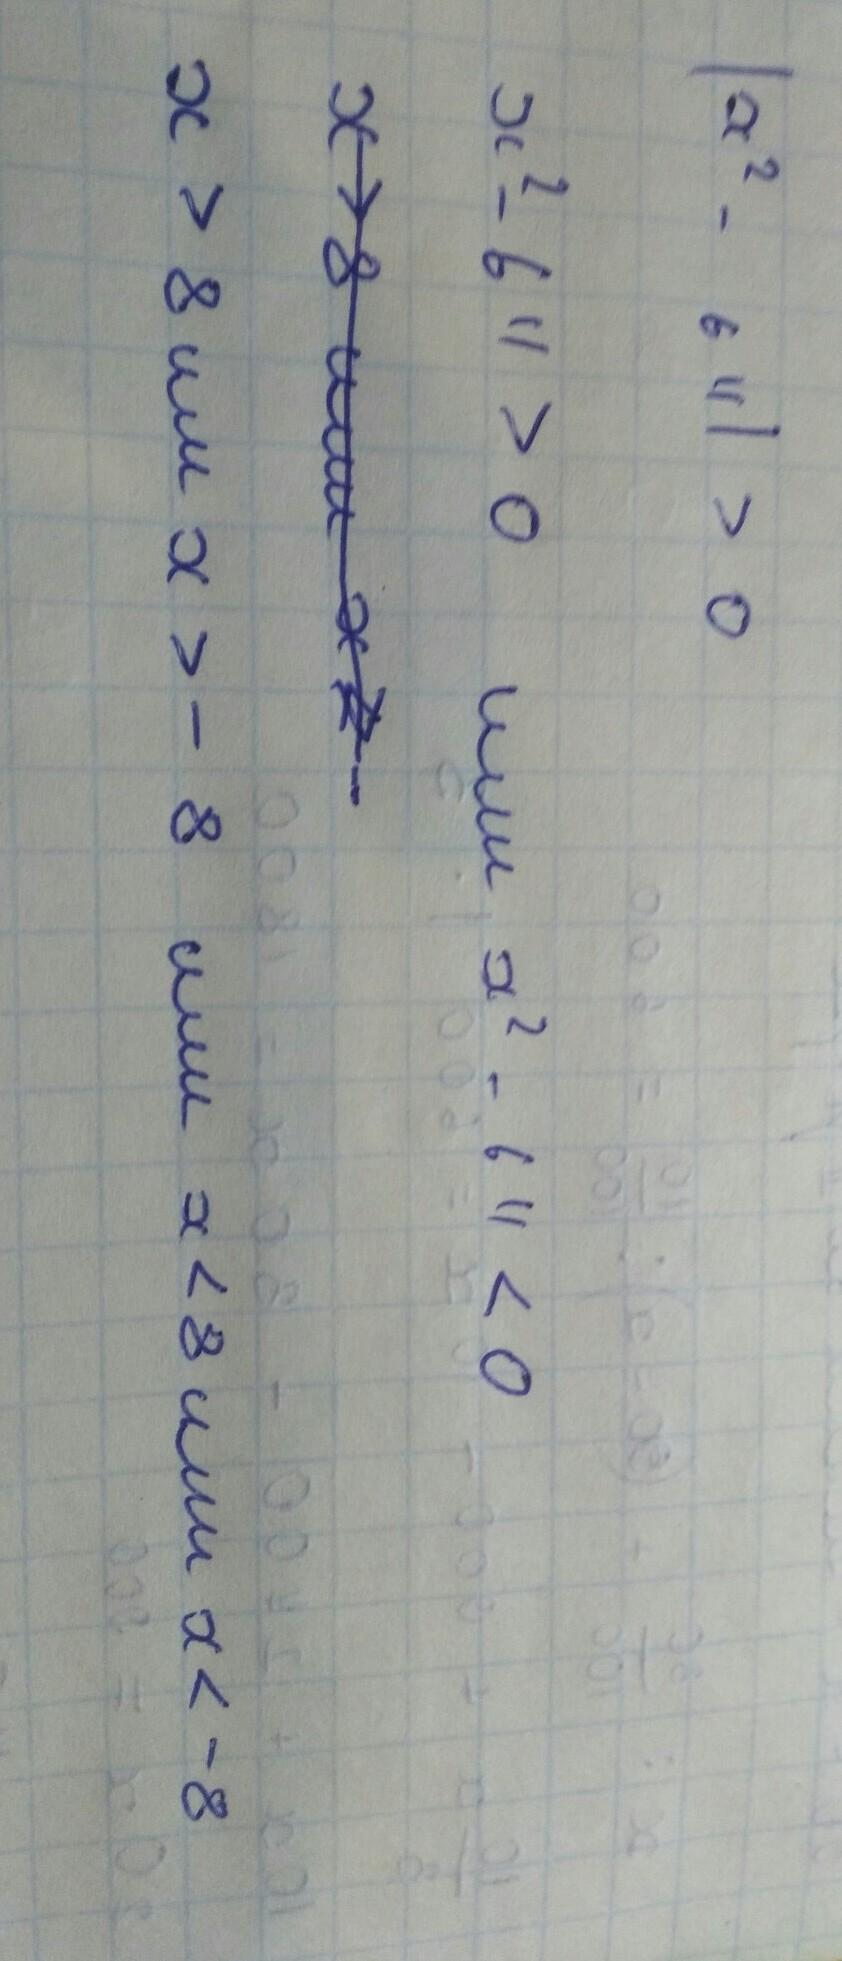 |x² - 64| > 0
x² - 64 > 0 или x² - 64 < 0
x > 8 или x
x > 8 или x > - 8 или x < 8 или x < -8